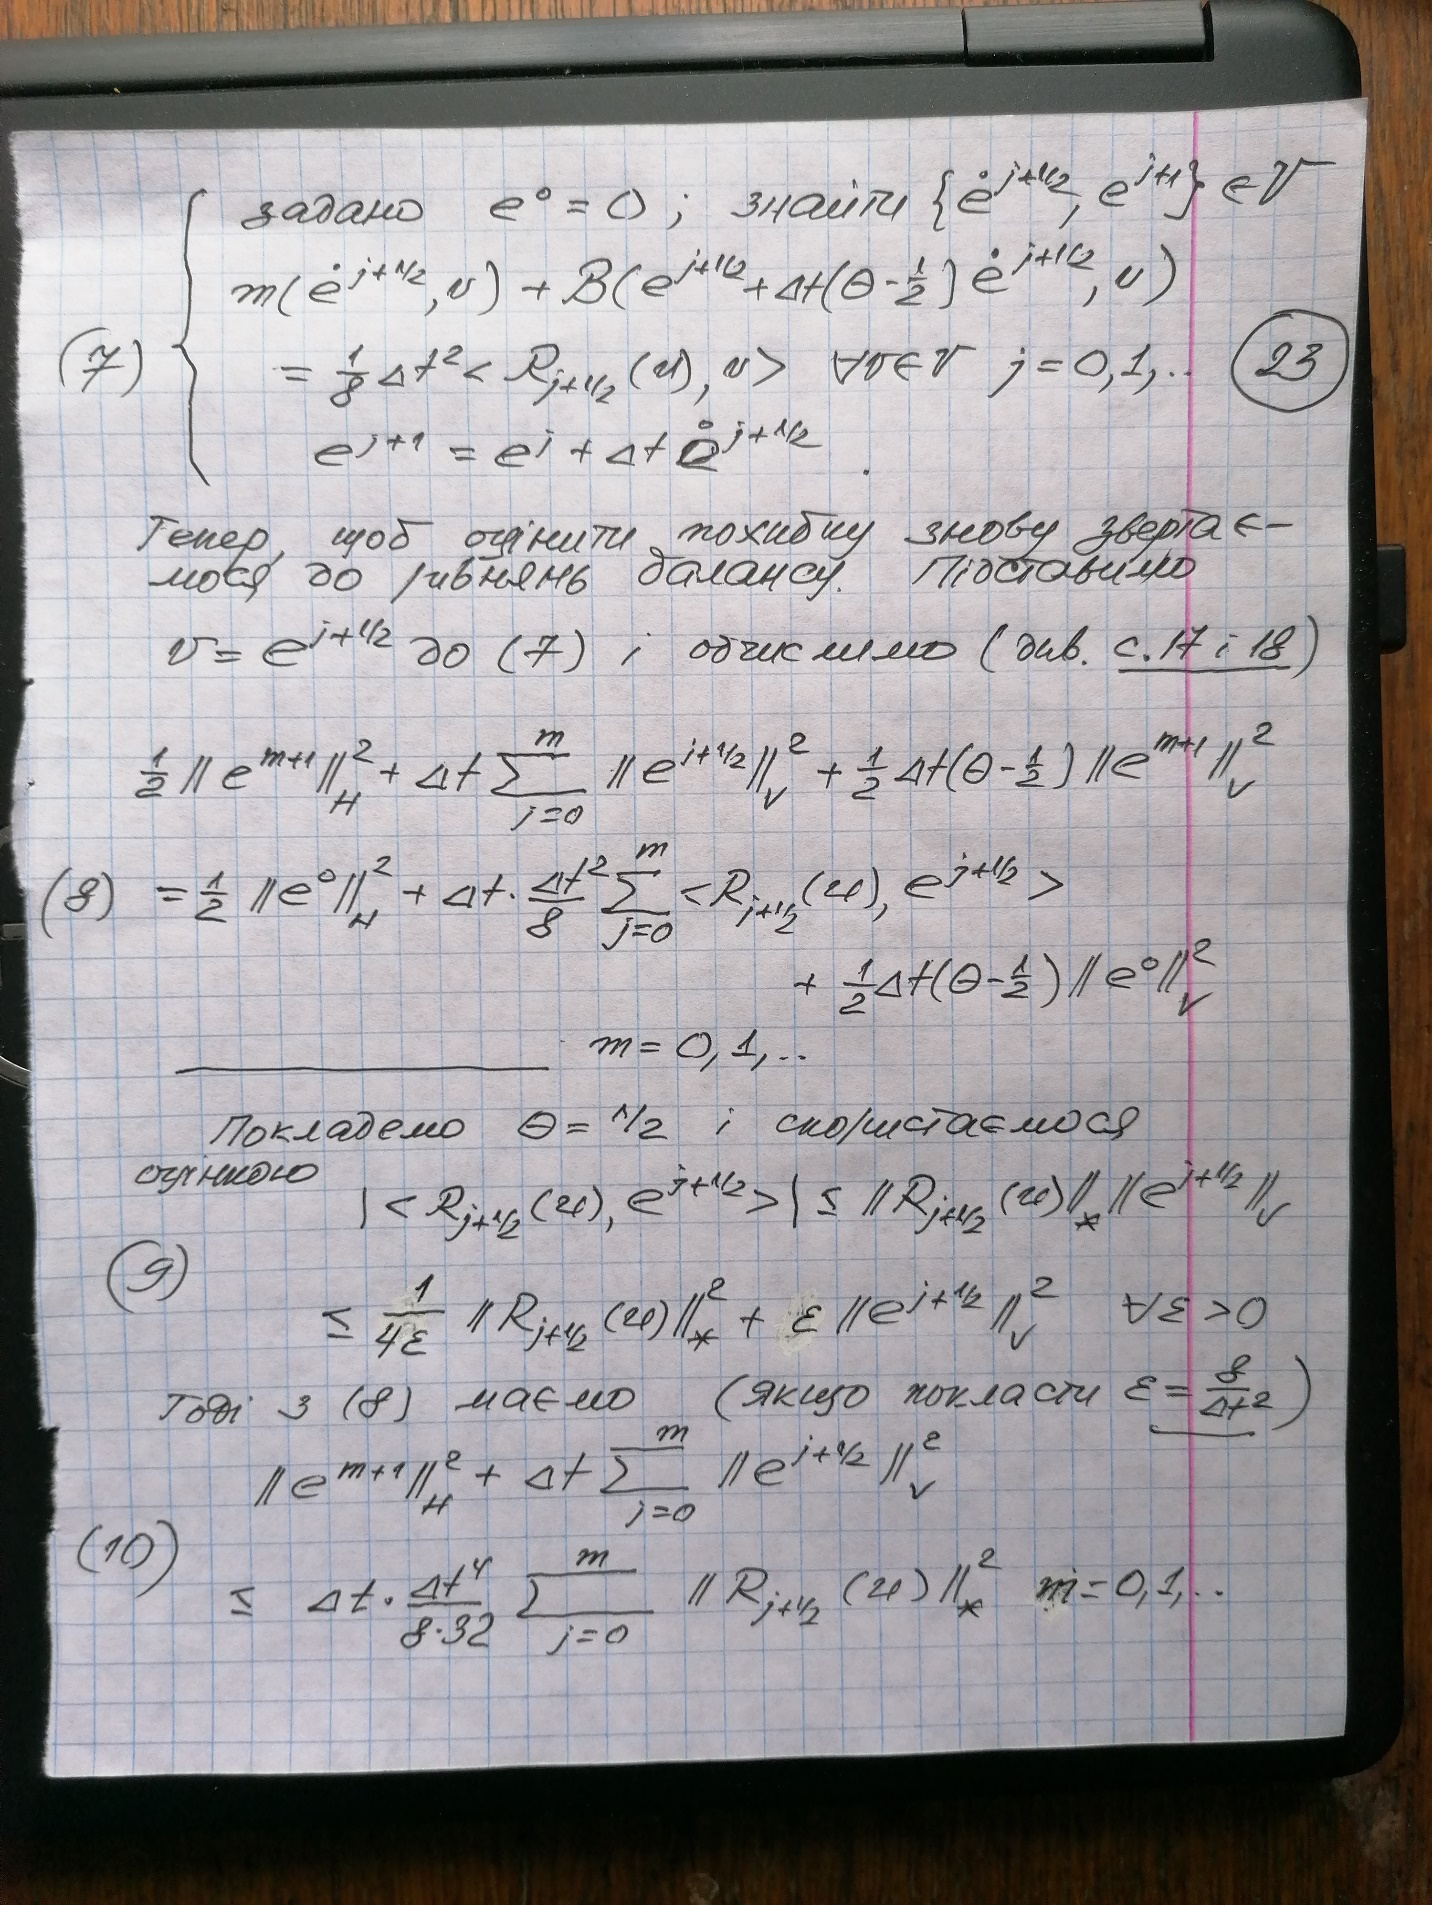 задано e⁰ = 0; знайти {ė^{j+1/2}, e^{j+1}} ∈ V
m(ė^{j+1/2}, v) + B(e^{j+1/2} + Δt(θ - 1/2] ė^{j+1/2}, v)
(7) = 1/8 Δt² < R_{j+1/2}(u), v > ∀v∈V j = 0,1,.. 23
e^{j+1} = e^j + Δt ė^{j+1/2}.
Тепер, щоб оцінити похибку знову звертає-
мося до рівнянь балансу. Підставимо
v = e^{j+1/2} до (7) і обчислимо (див. с. 17 і 18)
1/2 ||e^{m+1}||²_H + Δt Σ_{j=0}^{m} ||e^{j+1/2}||²_V + 1/2 Δt(θ - 1/2] ||e^{m+1}||²_V
(8) = 1/2 ||e⁰||²_H + Δt · Δt²/8 Σ_{j=0}^{m} < R_{j+1/2}(u), e^{j+1/2} >
+ 1/2 Δt(θ - 1/2) ||e⁰||²_V
m = 0,1,..
Покладемо θ = 1/2 і скористаємося
оцінкою
| < R_{j+1/2}(u), e^{j+1/2} > | ≤ ||R_{j+1/2}(u)||_* ||e^{j+1/2}||_V
(9)
≤ 1/4ε ||R_{j+1/2}(u)||²_* + ε ||e^{j+1/2}||²_V ∀ε < 0
Тоді з (8) маємо (якщо покласти ε = 8/Δt²)
||e^{m+1}||²_H + Δt Σ_{j=0}^{m} ||e^{j+1/2}||²_V
(10)
≤ Δt · Δt⁴/8·32 Σ_{j=0}^{m} ||R_{j+1/2}(u)||²_* m = 0,1,..